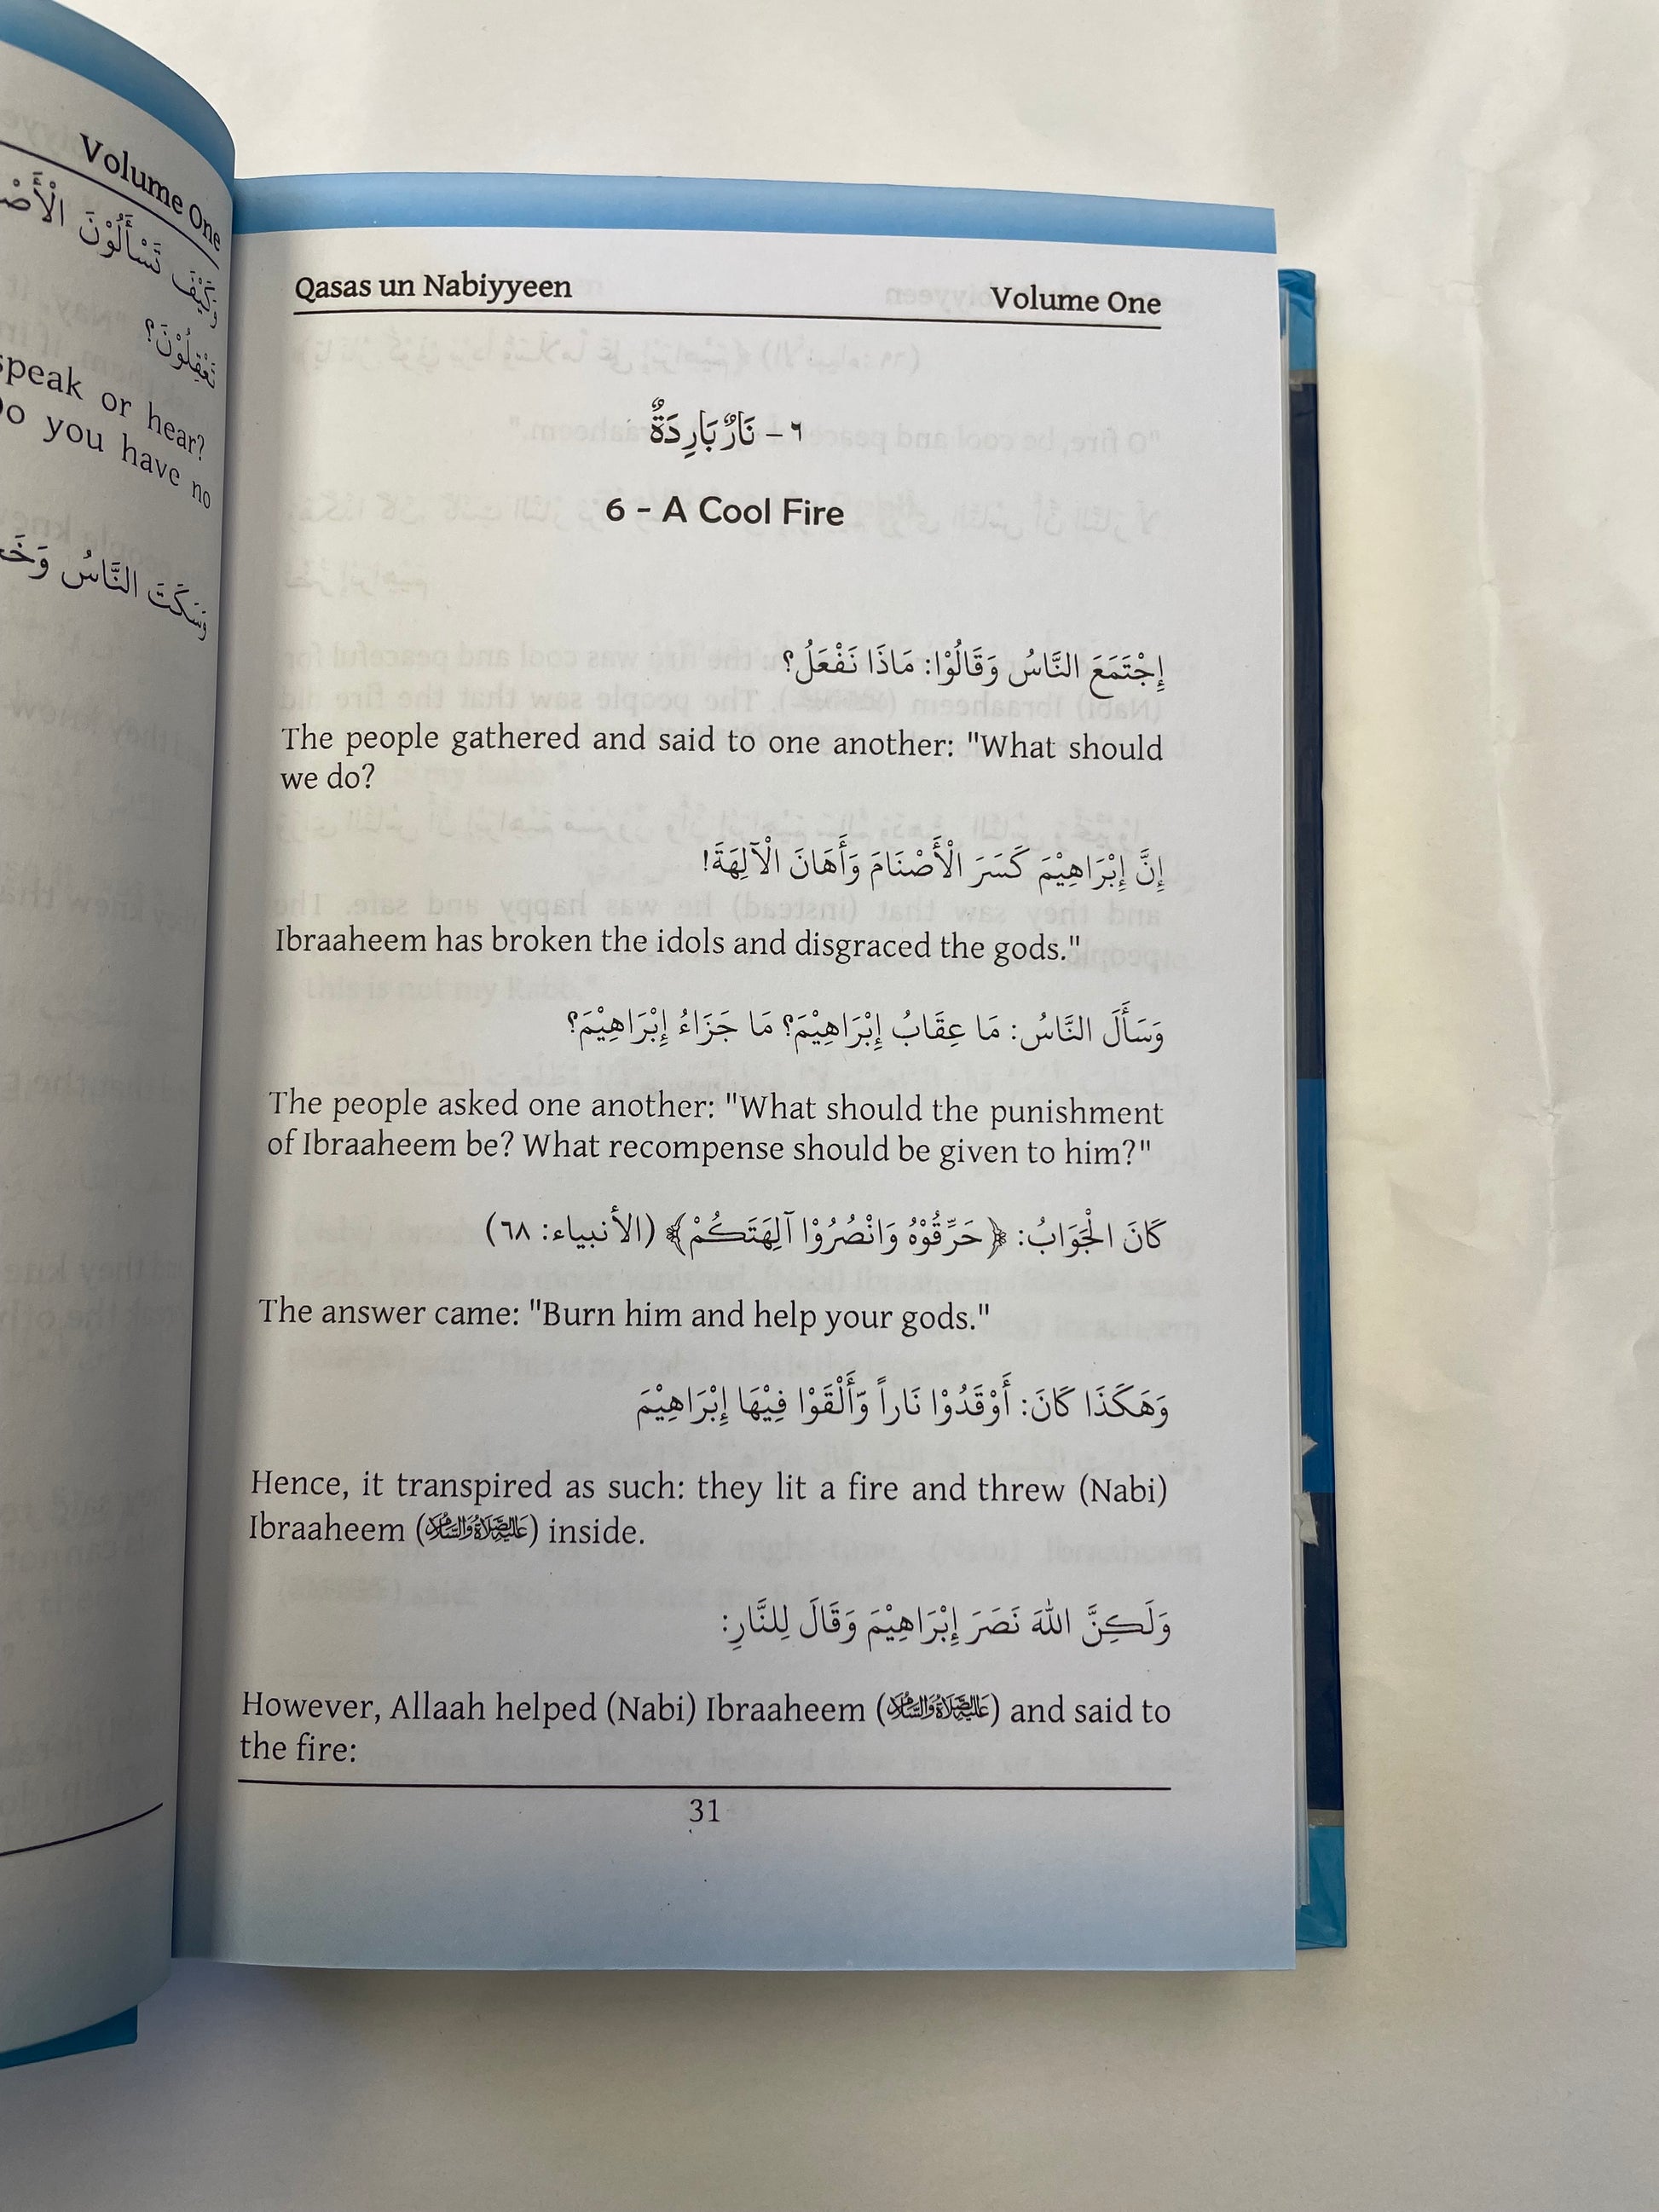 Volume One
كَيْفَ تَسْأَلُوْنَ
تَعْقِلُوْنَ؟
speak or hear?
Do you have no
وَسَكَتَ النَّاسُ
Qasas un Nabiyyeen Volume One
٦ – نَارٌ بَارِدَةٌ
6 – A Cool Fire
إِجْتَمَعَ النَّاسُ وَقَالُوْا: مَاذَا نَفْعَلُ؟
The people gathered and said to one another: "What should
we do?
إِنَّ إِبْرَاهِيْمَ كَسَرَ الْأَصْنَامَ وَأَهَانَ الْآلِهَةَ!
Ibraaheem has broken the idols and disgraced the gods."
وَسَأَلَ النَّاسُ: مَا عِقَابُ إِبْرَاهِيْمَ؟ مَا جَزَاءُ إِبْرَاهِيْمَ؟
The people asked one another: "What should the punishment
of Ibraaheem be? What recompense should be given to him?"
كَانَ الْجَوَابُ: ﴿حَرِّقُوْهُ وَانْصُرُوْا آلِهَتَكُمْ﴾ (الأنبياء: ٦٨)
The answer came: "Burn him and help your gods."
وَهَكَذَا كَانَ: أَوْقَدُوْا نَاراً وَّأَلْقَوْا فِيْهَا إِبْرَاهِيْمَ
Hence, it transpired as such: they lit a fire and threw (Nabi)
Ibraaheem (عَلَيْهِ الصَّلَاةُ وَالسَّلَامُ) inside.
وَلَكِنَّ اللهَ نَصَرَ إِبْرَاهِيْمَ وَقَالَ لِلنَّارِ:
However, Allaah helped (Nabi) Ibraaheem (عَلَيْهِ الصَّلَاةُ وَالسَّلَامُ) and said to
the fire:
31